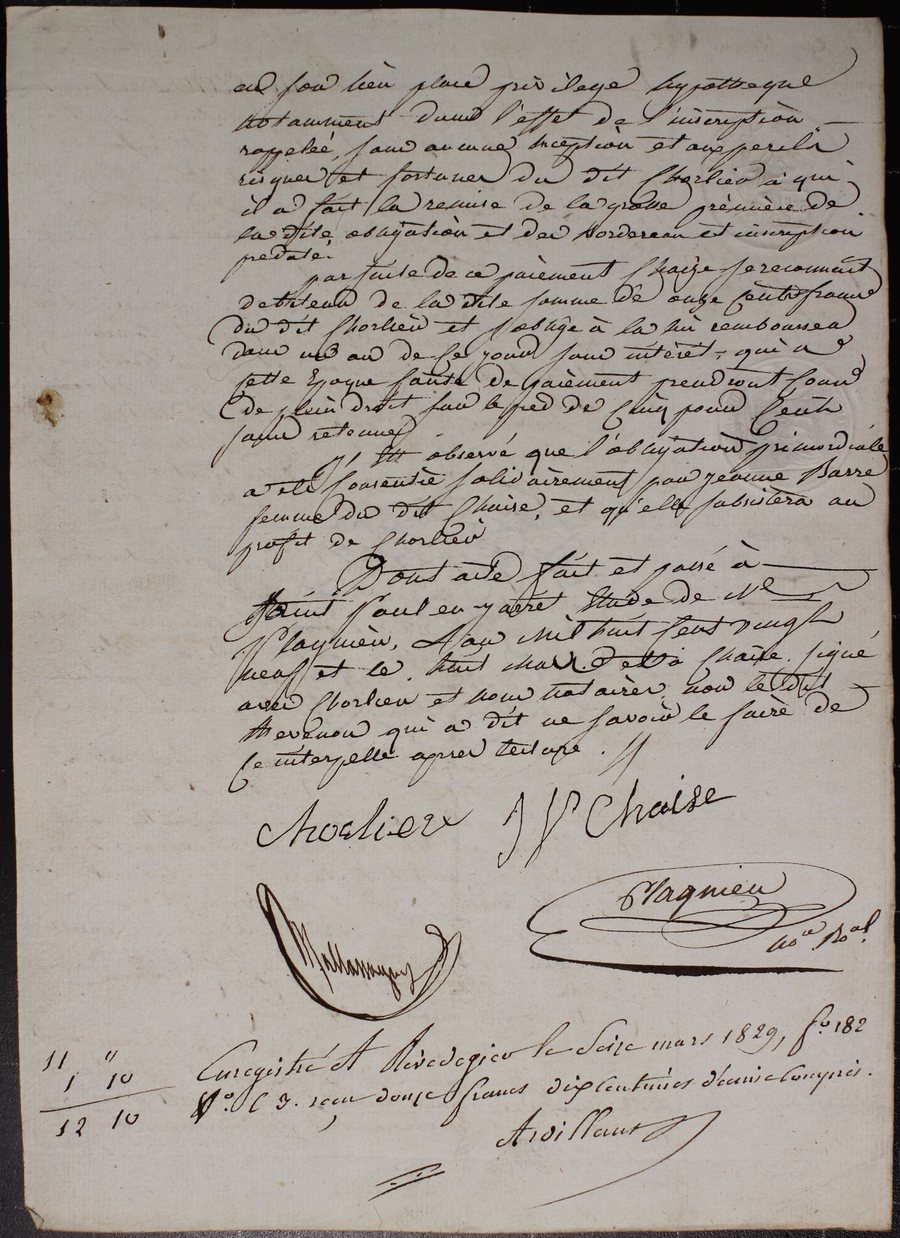 en son lieu place privilege hypotheque
notamment dans l'effet de l'inscription
rappelée, sans aucune exception et aux perils
risques et fortunes du dit Chorlier à qui
il a fait la remise de la grosse première de
la dite obligation et des bordereau et inscription
predaté.
par suite de ce paiement Chaize se reconnait
debiteur de la dite somme de onze Cents francs
du dit Chorlier et s'oblige à la lui rembourser
dans un an de Ce jour sans intérêt, qui a
Cette Epoque faute de paiement prendront Cours
de plein droit sur le pied de Cinq pour Cent
sans retenue
Il Est observé que l'obligation primordiale
a été Consentie solidairement par jeanne Barre
femme du dit Chaise, et qu'elle subsistera au
profit de Chorlier
Dont acte fait et passé à
Saint Paul en jarêt Etude de Me
Plagnieu, L'an Mil huit Cent vingt
neuf et le huit mars. Chaise signé
avec Chorlier et nous notaires non le dit
thevenon qui a dit ne savoir le faire de
Ce interpellé apres lecture.
Chorlier JP Chaise
Plagnieu
nore Roal.
11 "
1 10
12 10
Enregistré à Rivedegier le Seize mars 1829, fo 182
Vo. C 3. reçu douze francs dix Centimes décime Compris.